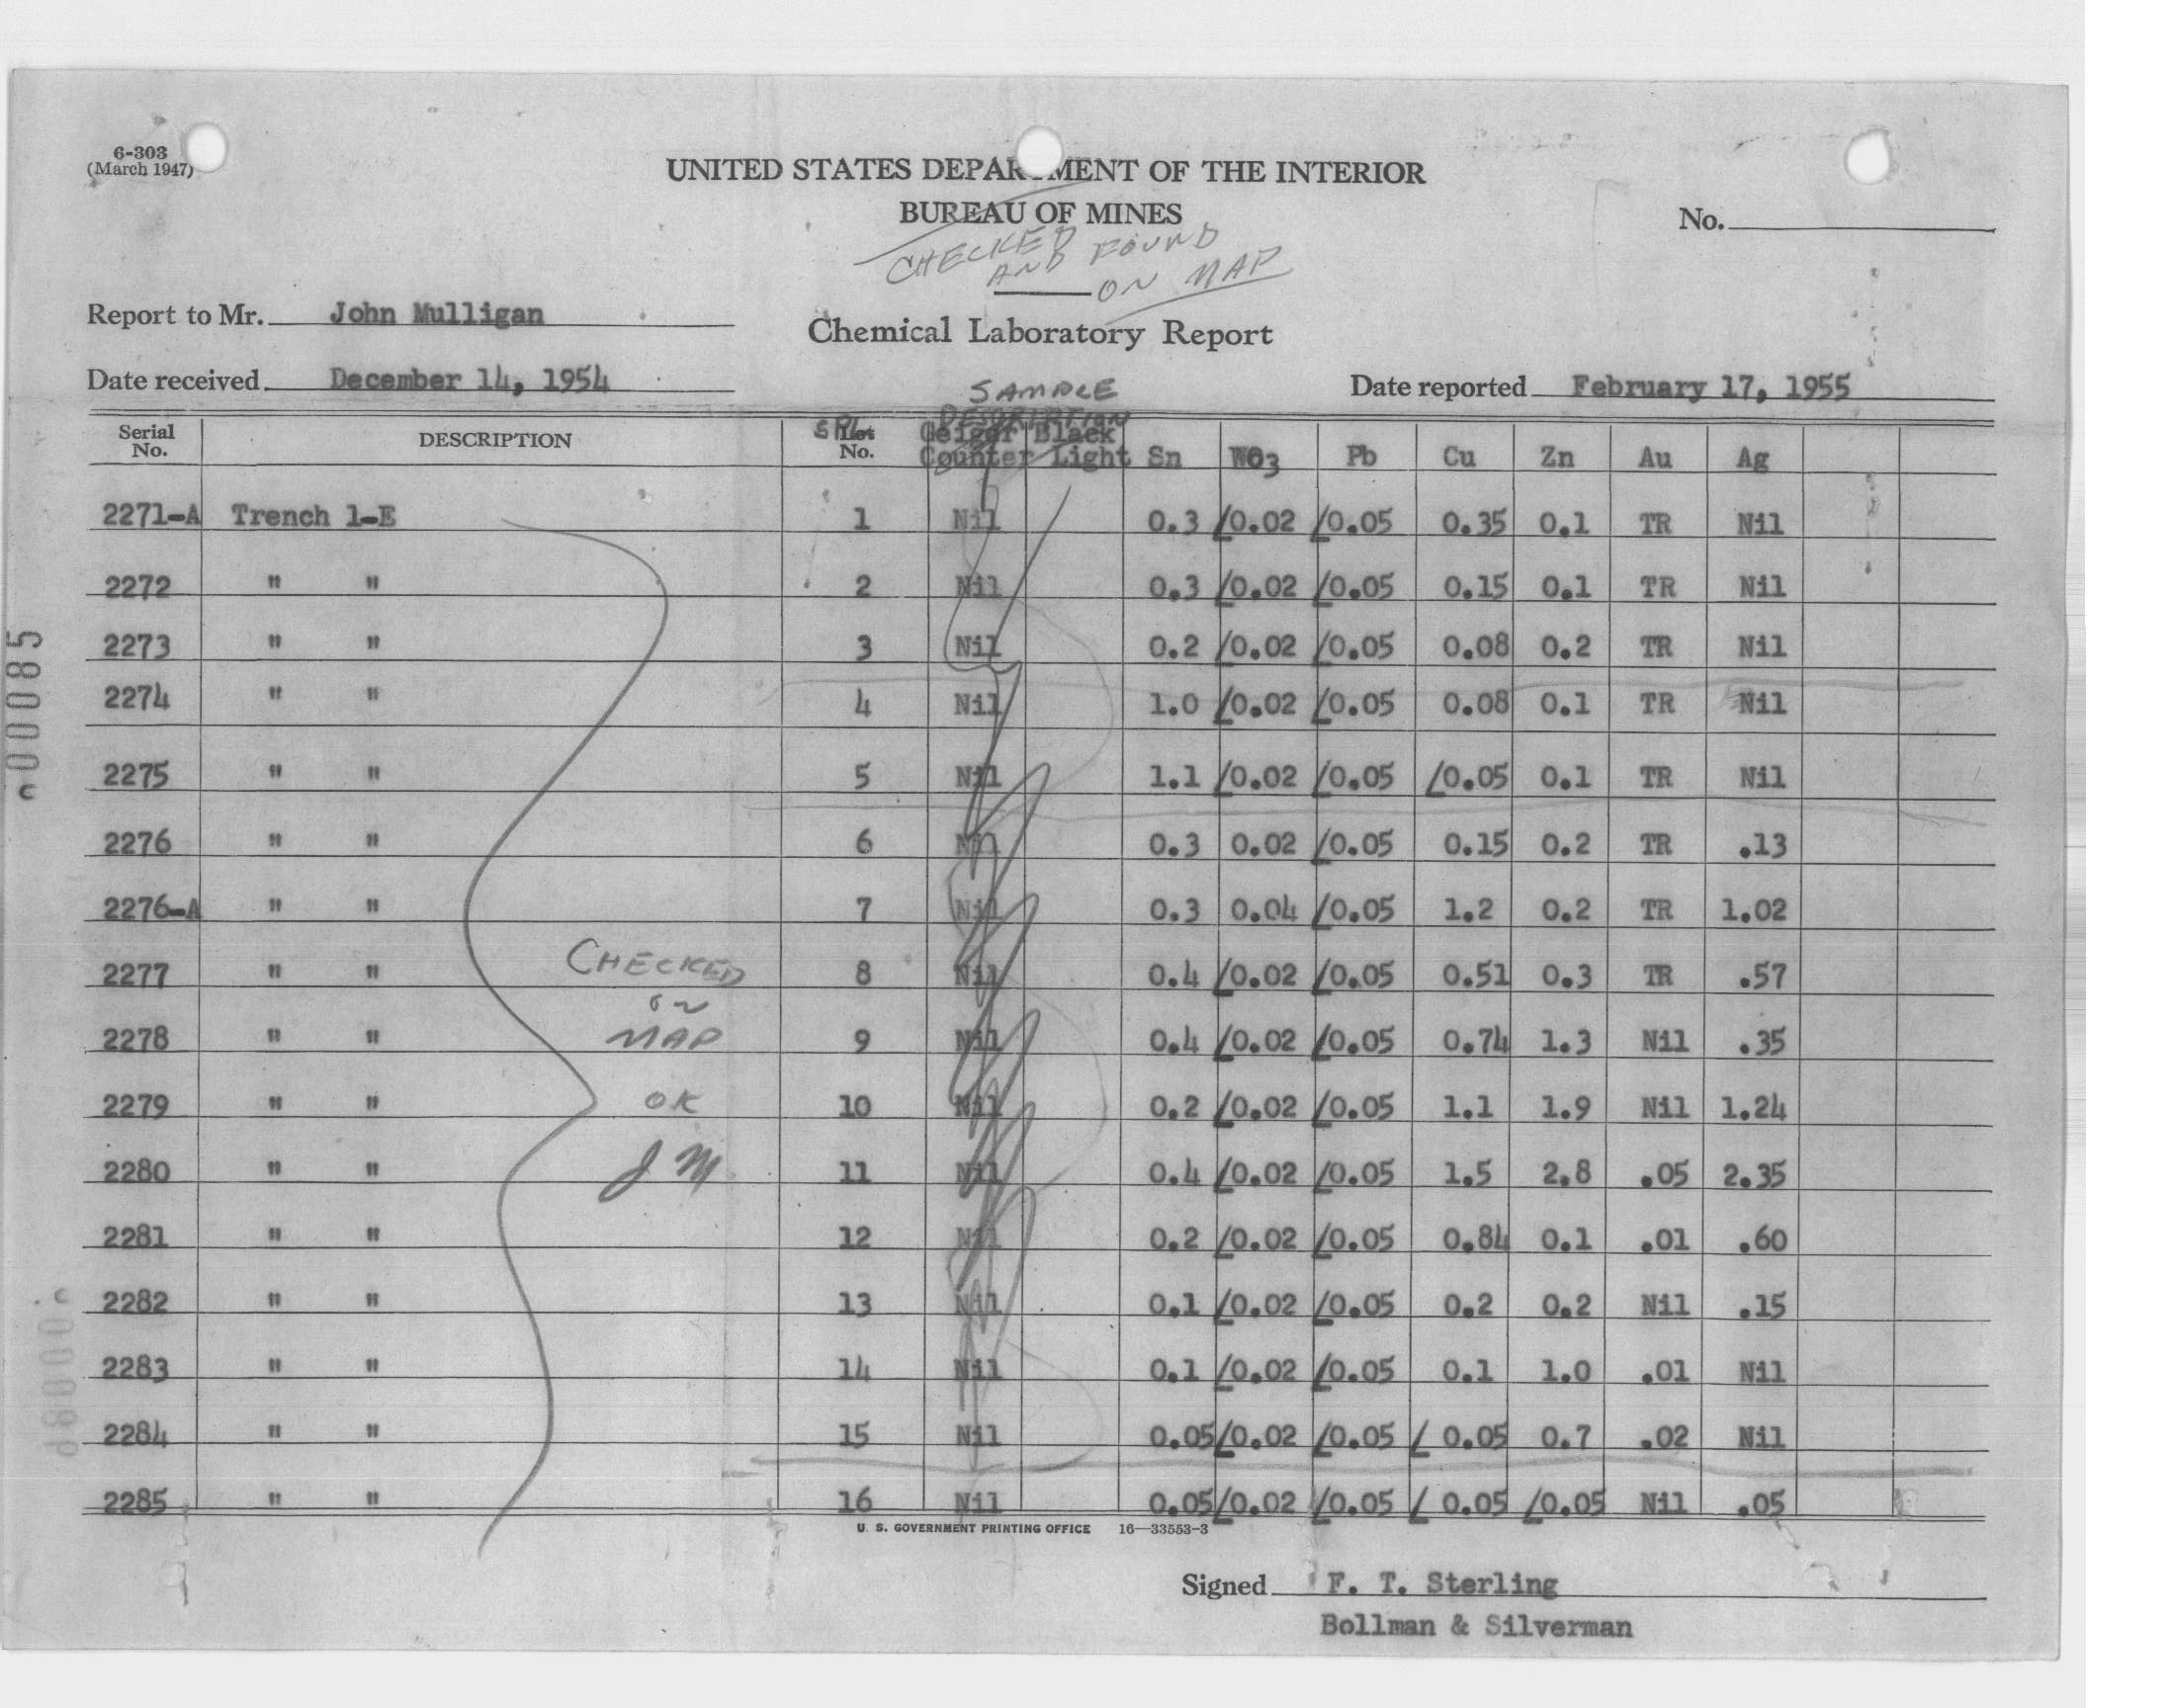 6-303
(March 1947)
UNITED STATES DEPARTMENT OF THE INTERIOR
BUREAU OF MINES
No.
CHECKED
AND FOUND
ON MAP
Report to Mr. John Mulligan
Chemical Laboratory Report
Date received December 14, 1954
Date reported February 17, 1955
SAMPLE
DESCRIPTION
Serial No. DESCRIPTION SPL Lot No. Geiger Counter Black Light Sn WO3 Pb Cu Zn Au Ag
2271-A Trench 1-E 1 Nil 0.3 /0.02 /0.05 0.35 0.1 TR Nil
2272 " " 2 Nil 0.3 /0.02 /0.05 0.15 0.1 TR Nil
2273 " " 3 Nil 0.2 /0.02 /0.05 0.08 0.2 TR Nil
2274 " " 4 Nil 1.0 /0.02 /0.05 0.08 0.1 TR Nil
2275 " " 5 Nil 1.1 /0.02 /0.05 /0.05 0.1 TR Nil
2276 " " 6 Nil 0.3 0.02 /0.05 0.15 0.2 TR .13
2276-A " " 7 Nil 0.3 0.04 /0.05 1.2 0.2 TR 1.02
2277 " " 8 Nil 0.4 /0.02 /0.05 0.51 0.3 TR .57
2278 " " 9 Nil 0.4 /0.02 /0.05 0.74 1.3 Nil .35
2279 " " 10 Nil 0.2 /0.02 /0.05 1.1 1.9 Nil 1.24
2280 " " 11 Nil 0.4 /0.02 /0.05 1.5 2.8 .05 2.35
2281 " " 12 Nil 0.2 /0.02 /0.05 0.84 0.1 .01 .60
2282 " " 13 Nil 0.1 /0.02 /0.05 0.2 0.2 Nil .15
2283 " " 14 Nil 0.1 /0.02 /0.05 0.1 1.0 .01 Nil
2284 " " 15 Nil 0.05 /0.02 /0.05 / 0.05 0.7 .02 Nil
2285 " " 16 Nil 0.05 /0.02 /0.05 / 0.05 /0.05 Nil .05
CHECKED
on
MAP
OK
JM
U. S. GOVERNMENT PRINTING OFFICE 16—33553-3
Signed F. T. Sterling
Bollman & Silverman
000085